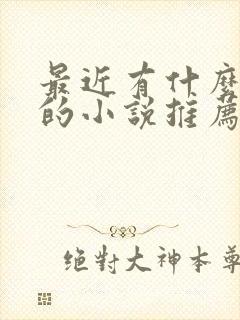 最近有什麼
的小說推薦
絕對大神本尊